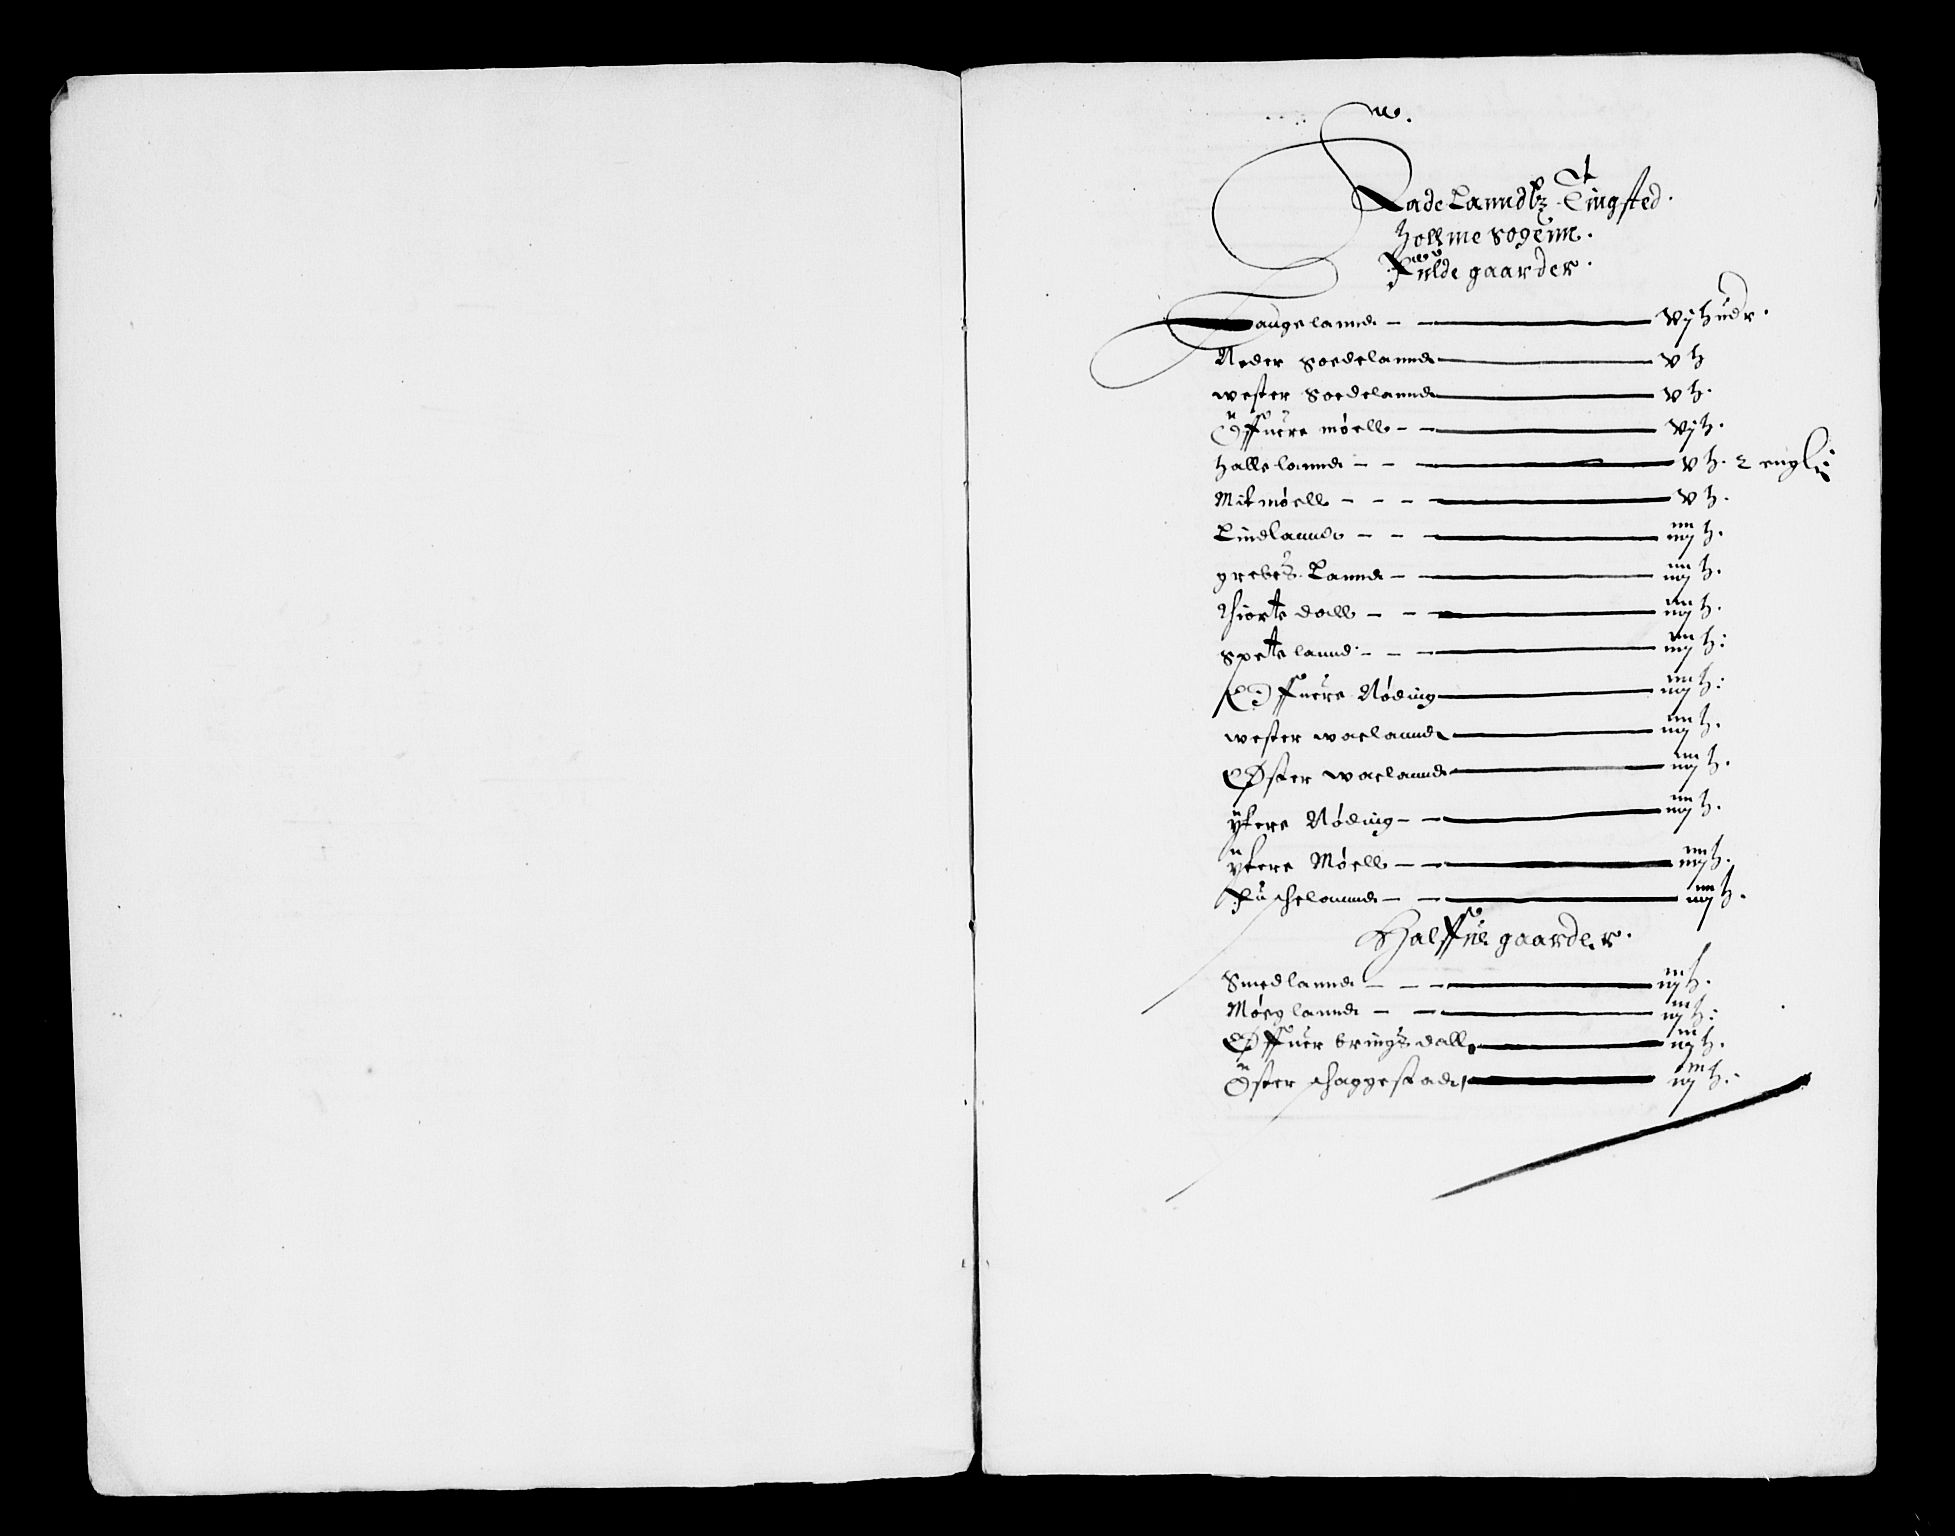 Ladelanndtz Tingsted.
Hollme Sogenn.
Fulde gaarder.
Laugelannd — vj hudr.
Neder Sodelannd — v h
Wester Sodelannd — v h.
Öffuere møell — vj h.
Hallelannd — v h. 2 engl:
Mitmøell — v h.
Lindlannd — iiij h.
grebes Lannd — iiij h.
Hiorte dall — iiij h.
Spetelannd — iiij h:
Offuere Nøding — iiij h:
Wester waelannd — iiij h.
Øster waelannd — iiij h.
ytere Nøding — iiij h.
ytere Møell — iiij h.
Fuschelannd — iiij h.
Halffue gaarder.
Smedlannd — iij h.
Møeglannd — iij h:
Øffuer bringsdall — iij h.
Øster schaggestad — iij h.